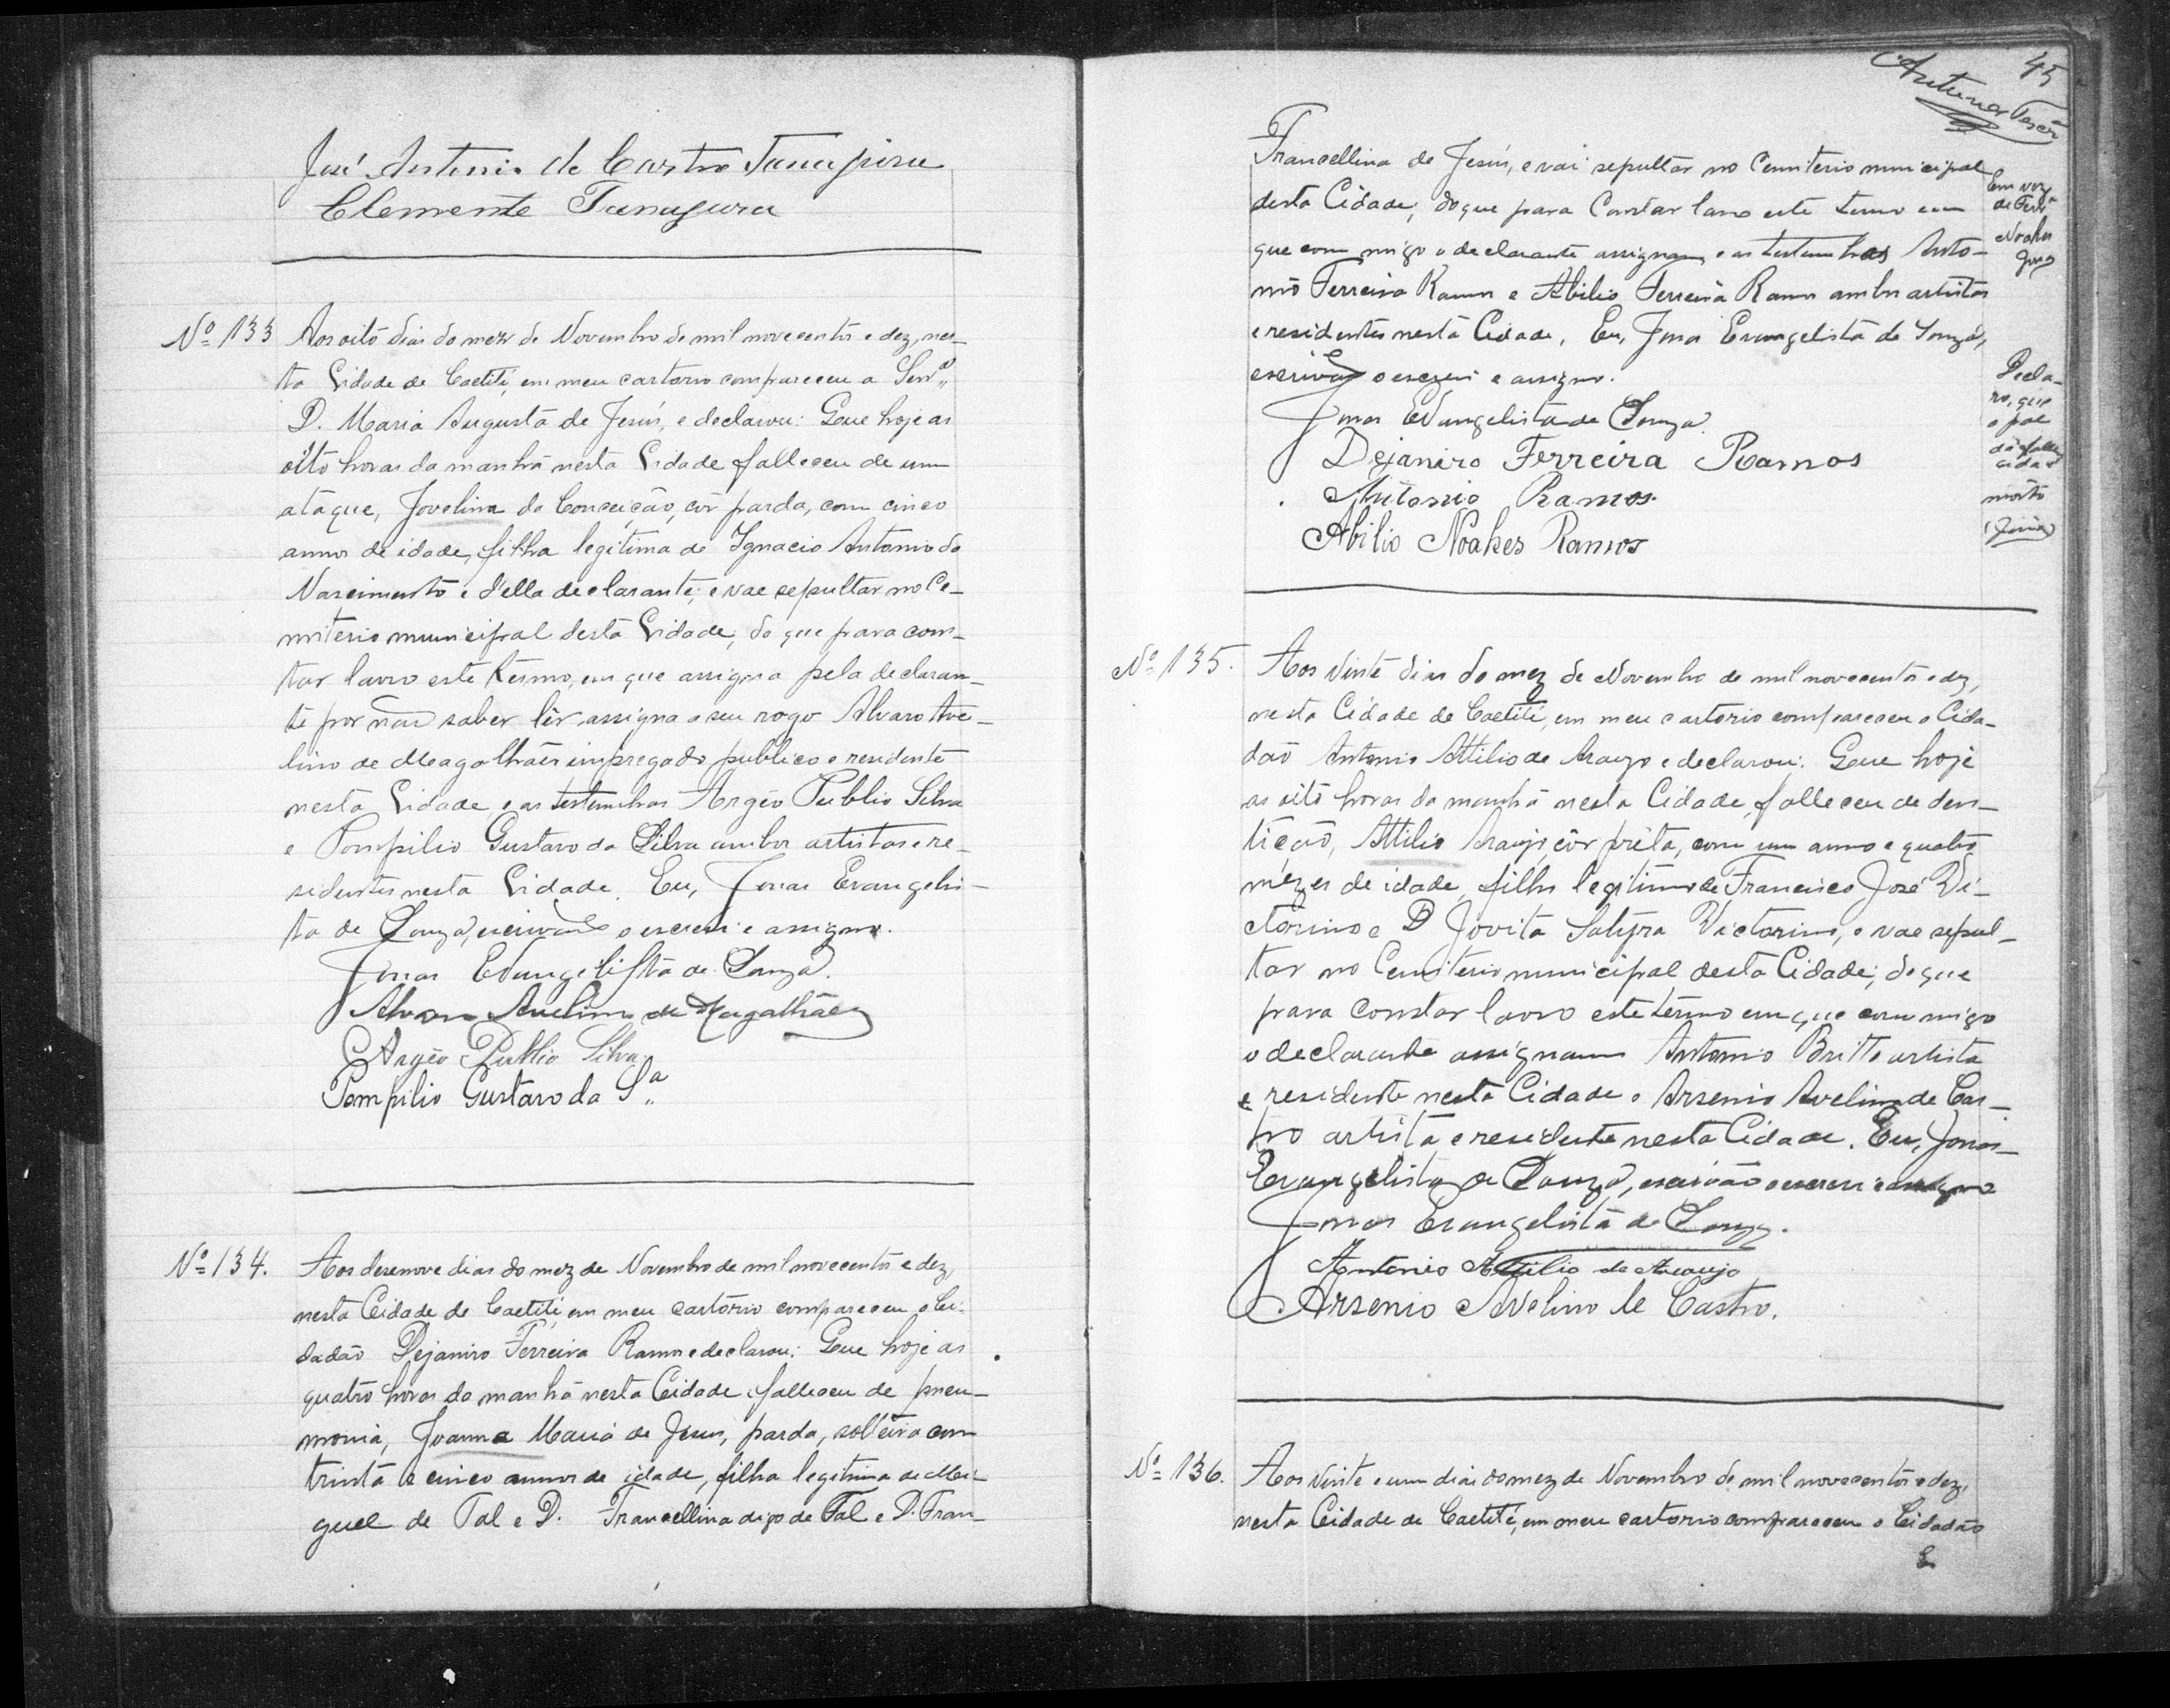 José Antonio de Castro Tanajura
Clemente Tanajura
Nº 133 Aos oito dias do mez de Novembro de mil novecentos e dez, nes-
ta Cidade de Caetité, em meu cartorio compareceu a Senrª
D. Maria Augusta de Jesús, e declarou: Que hoje as
oito horas da manhã nesta Cidade falleceu de um
ataque, Jovelina da Conceição, côr parda, com cinco
annos de idade, filha legitima de Ignacio Antonio do
Nascimento e d'ella declarante; e vae sepultar no Ce-
miterio municipal desta Cidade, do que para cons-
tar lavro este têrmo, em que assigna pela declaran-
te por não saber lêr, assigna a seu rogo Alvaro Ave-
lino de Magalhães impregado publico e residente
nesta Cidade, e as testemunhas Argêo Publio Silva
e Pompilio Gustavo da Silva ambos artistas e re-
sidentes nesta Cidade. Eu, Jonas Evangelis-
ta de Souza, escrivão o escrevi e assigno.
Jonas Evangelista de Souza.
Alvaro Avelino de Magalhães
Argêo Publio Silva
Pompilio Gustavo da Sª
Nº 134. Aos desenove dias do mez de Novembro de mil novecentos e dez,
nesta Cidade de Caetité, em meu cartorio compareceu o Ci-
dadão Dejaniro Ferreira Ramos e declarou: Que hoje as
quatro horas da manhã nesta Cidade falleceu de pneu-
monia, Joanna Maria de Jesus, parda, solteira com
trinta e cinco annos de idade, filha legitima de Mi-
guel de Tal e D. Francellina digo de Tal e D. Fran-
45
Antunes
Francellina de Jesús, e vai sepultar no Cemiterio municipal
desta Cidade; do que para Constar lavro este termo em
que com migo o declarante assignam e as testemunhas Anto-
nio Ferreira Ramos e Abilio Ferreira Ramos ambos artistas
e residentes nesta Cidade. Eu, Jonas Evangelista de Souza,
escrivão o escrevi e assigno.
Jonas Evangelista de Souza.
Dejaniro Ferreira Ramos
Antonio Ramos.
Abilio Noahes Ramos
Em vez
de Ferrª
Noahes
Decla-
ro, que
o pae
da falle
cida é
morto
Nº 135. Aos vinte dias do mez de Novembro de mil novecentos e dez,
nesta Cidade de Caetité, em meu cartorio compareceu o Cida-
dão Antonio Attilio de Araujo e declarou: Que hoje
as oito horas da manhã nesta Cidade, falleceu de den-
tição, Attilio Araujo, côr prêta, com um anno e quatro
mêzes de idade, filho legitimo de Francisco José Vi-
ctorino e D Jovita Satyra Victorino, e vae sepul-
tar no Cemiterio municipal desta Cidade; do que
para constar lavro este têrmo em que com migo
o declarante assignam Antonio Britto artista
e residente nesta Cidade e Arsenio Avelino de Cas-
tro artista e residente nesta Cidade. Eu, Jonas
Evangelista de Souza, escrivão o escrevi e assigno
Jonas Evangelista de Souza.
Antonio Attilio de Araujo
Arsenio Avelino de Castro.
Nº 136. Aos vinte e um dias do mez de Novembro de mil novecentos e dez,
nesta Cidade de Caetité, em meu cartorio compareceu o Cidadão